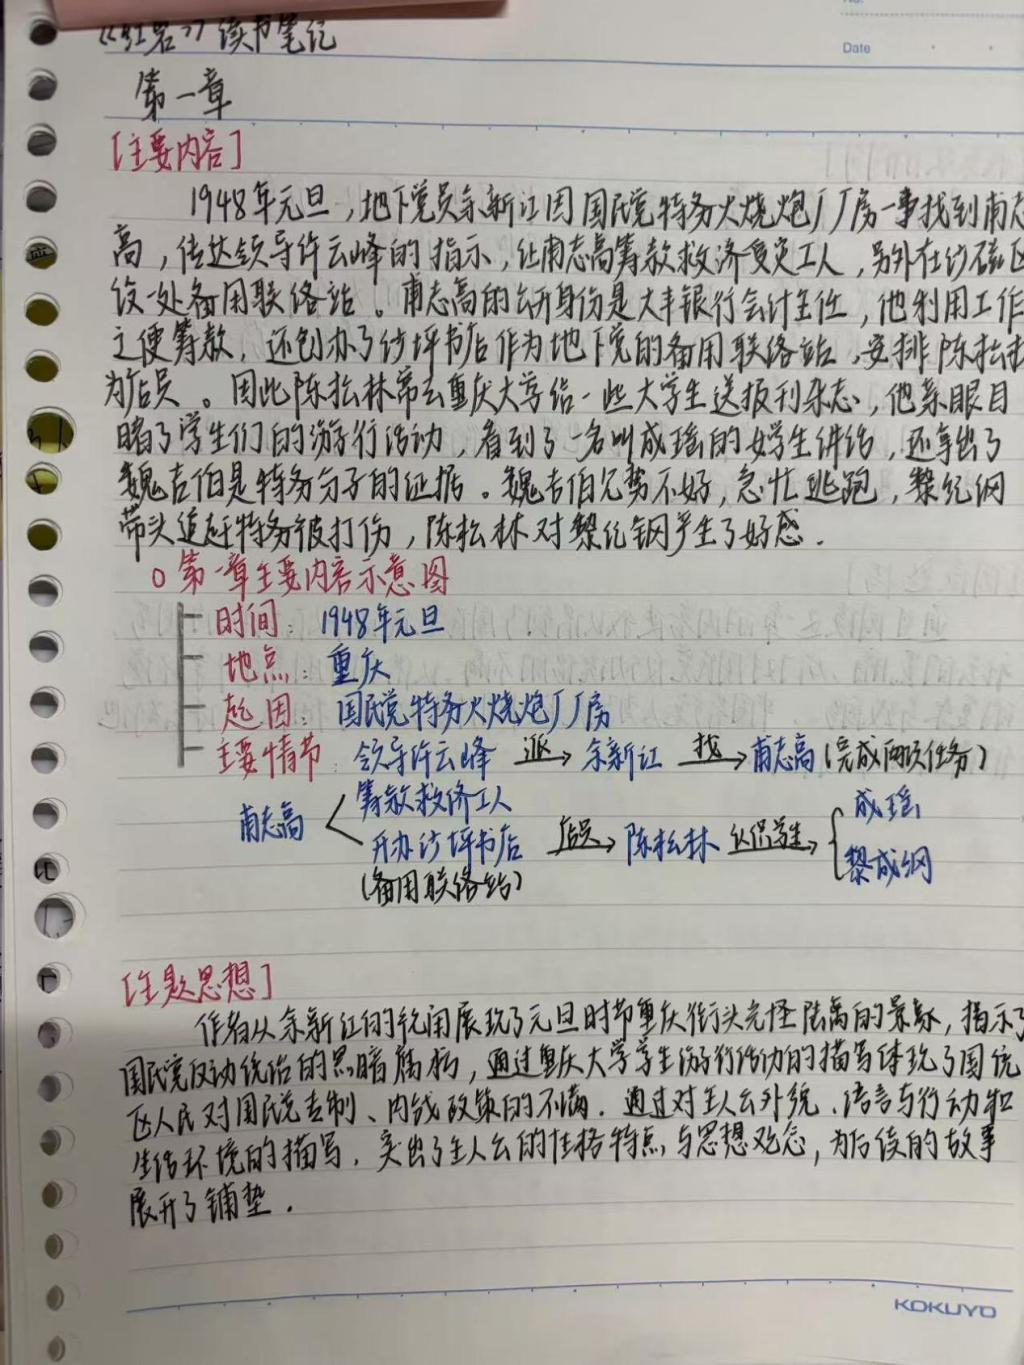 《红岩》读书笔记
Date
第一章
[主要内容]
1948年元旦，地下党员余新江因国民党特务火烧炮厂厂房一事找到甫志
高，传达领导许云峰的指示，让甫志高筹款救济受灾工人，另外在沙磁区
设一处备用联络站。甫志高的公开身份是大丰银行会计主任，他利用工作
之便筹款，还创办了沙坪书店作为地下党的备用联络站，安排陈松林
为店员。因此陈松林常去重庆大学给一些大学生送报刊杂志，他亲眼目
睹了学生们的游行活动，看到了一名叫成瑶的女学生讲话，还拿出了
魏吉伯是特务分子的证据。魏吉伯见势不好，急忙逃跑，黎纪纲
带头追赶特务被打伤，陈松林对黎纪钢产生了好感.
o 第一章主要内容示意图
时间：1948年元旦
地点：重庆
起因：国民党特务火烧炮厂厂房
主要情节：领导许云峰 派→ 余新江 找→ 甫志高(完成两项任务)
甫志高 < 筹款救济工人
开办沙坪书店 店员→ 陈松林 认识学生→ { 成瑶
(备用联络站) 黎成纲
[主题思想]
作者从余新江的视角展现了元旦时节重庆街头光怪陆离的景象，揭示了
国民党反动统治的黑暗腐朽，通过重庆大学学生游行活动的描写体现了国统
区人民对国民党专制、内战政策的不满．通过对主人公外貌、语言与行动和
生活环境的描写，突出了主人公的性格特点与思想观念，为后续的故事
展开了铺垫．
KOKUYO